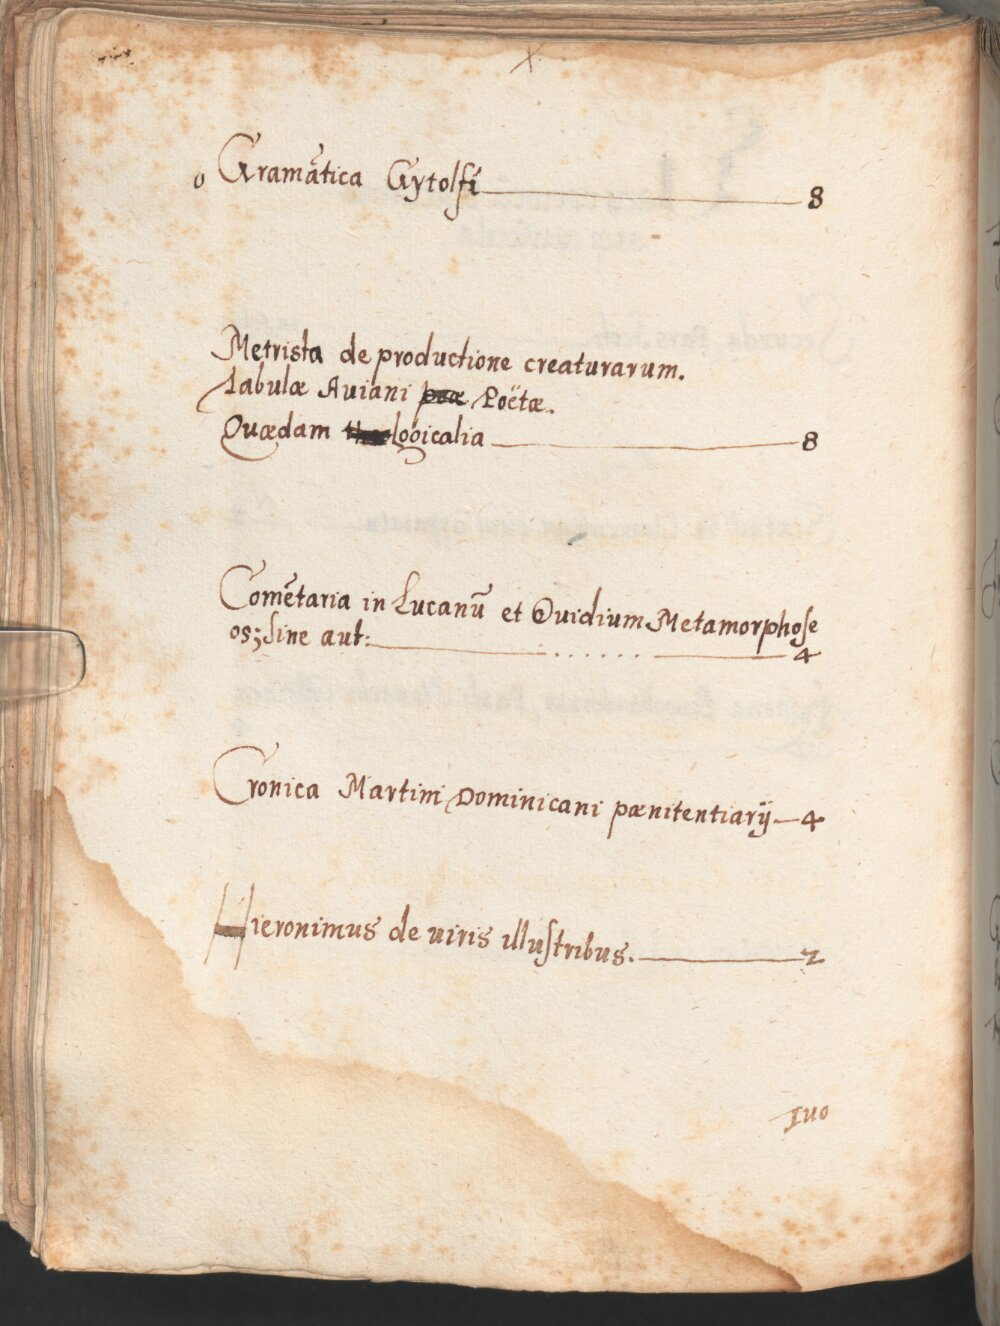 o Gramãtica Gytolfi 8
Metrista de productione creaturarum.
Tabulæ Auiani Poëtæ.
Quædam logicalia 8
Comẽtaria in Lucanũ et Ouidium Metamorphose
os; sine aut: 4
Cronica Martini Dominicani pænitentiarij 4
Hieronimus de uiris illustribus. 2
Iuo